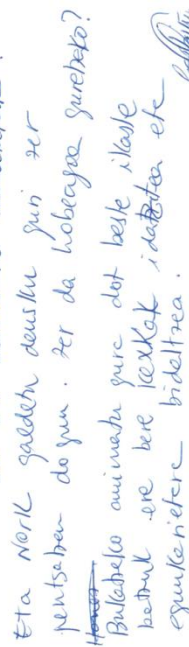 Eta Nork galdetu deusku guri zer
pentseten dogun. Zer da hobeagoa guretzeko?
Bukatzeko animatu gure dot beste ikaste
batzuk ere bere kexkak idaztea eta
egunkarietara bidaltzea.